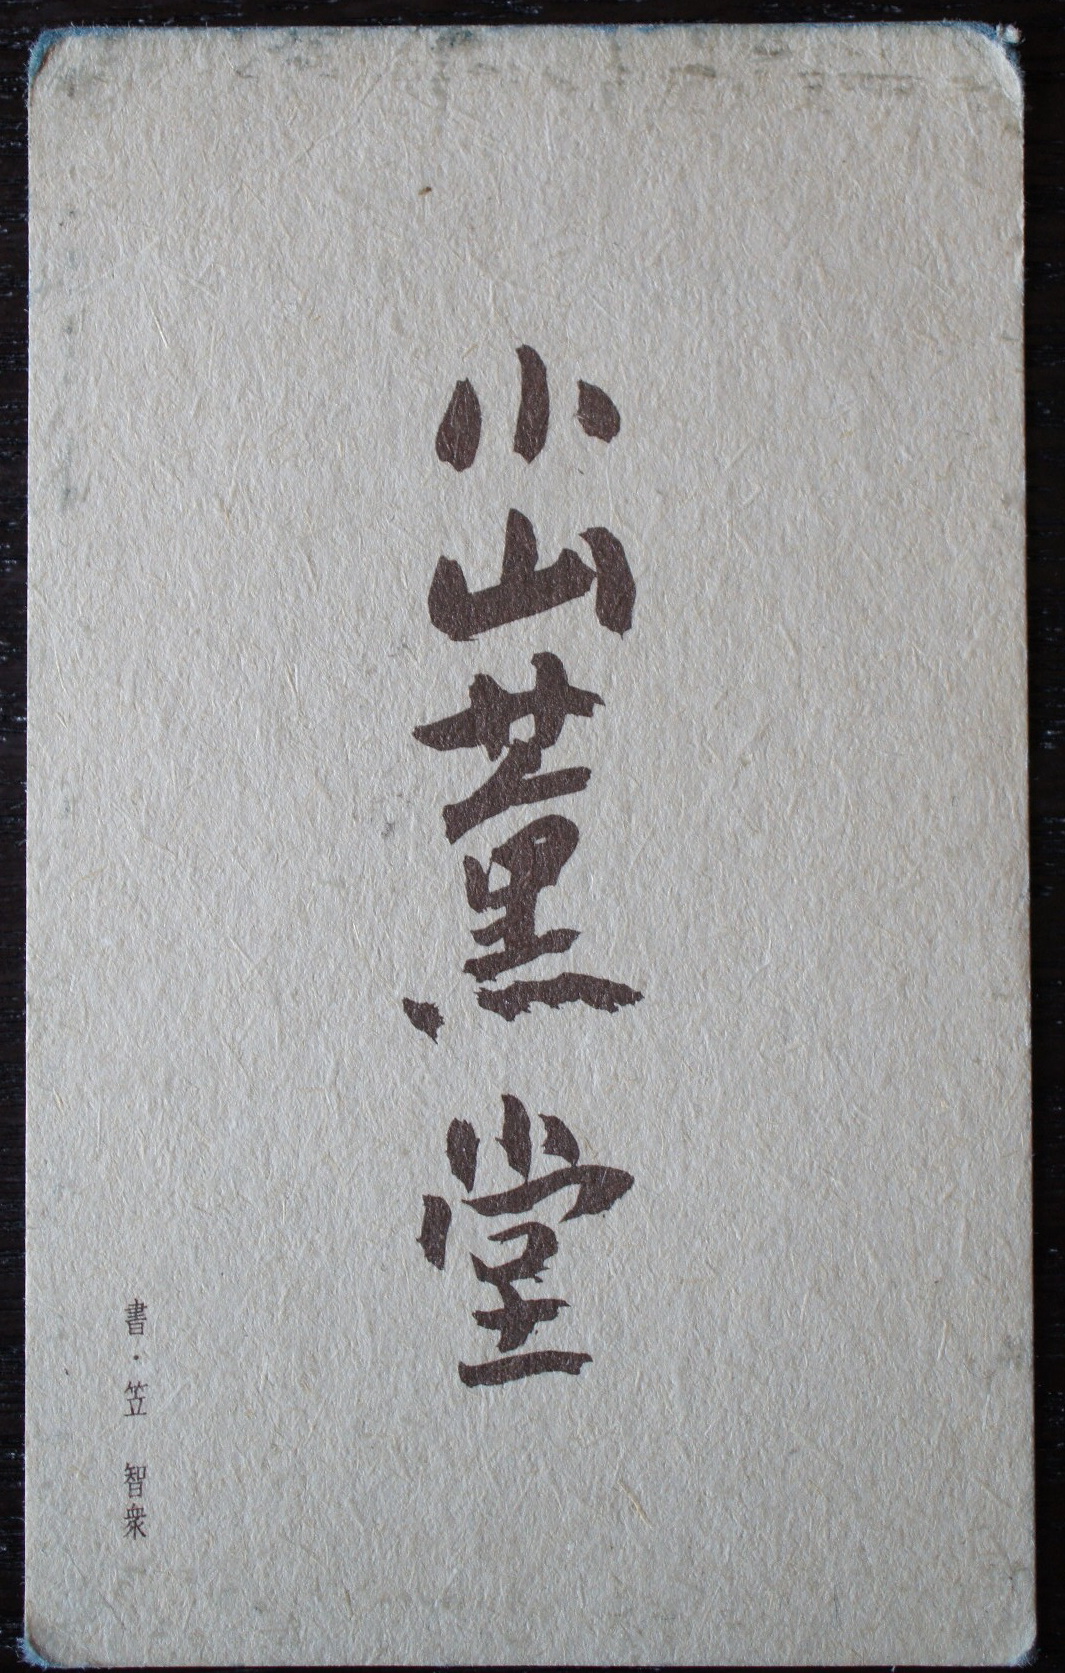 小山薫堂
書・笠 智衆